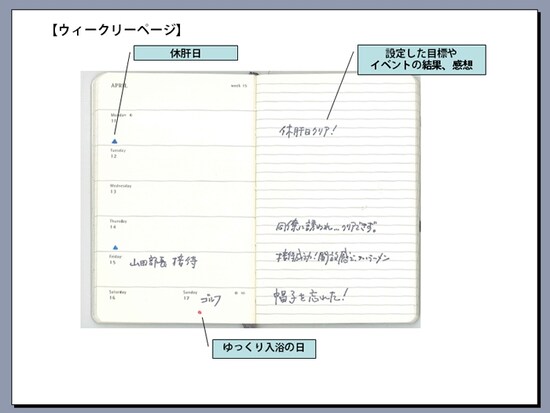 【ウィークリーページ】
休肝日
設定した目標や
イベントの結果、感想
APRIL
week 15
Monday
11
休肝日クリア!
Tuesday
12
Wednesday
13
Thursday
14
同僚に誘われ…クリアできず。
Friday
15
山田部長 接待
接待成功!開放感で
ラーメン
Saturday
16
Sunday
17
ゴルフ
帽子を忘れた!
ゆっくり入浴の日